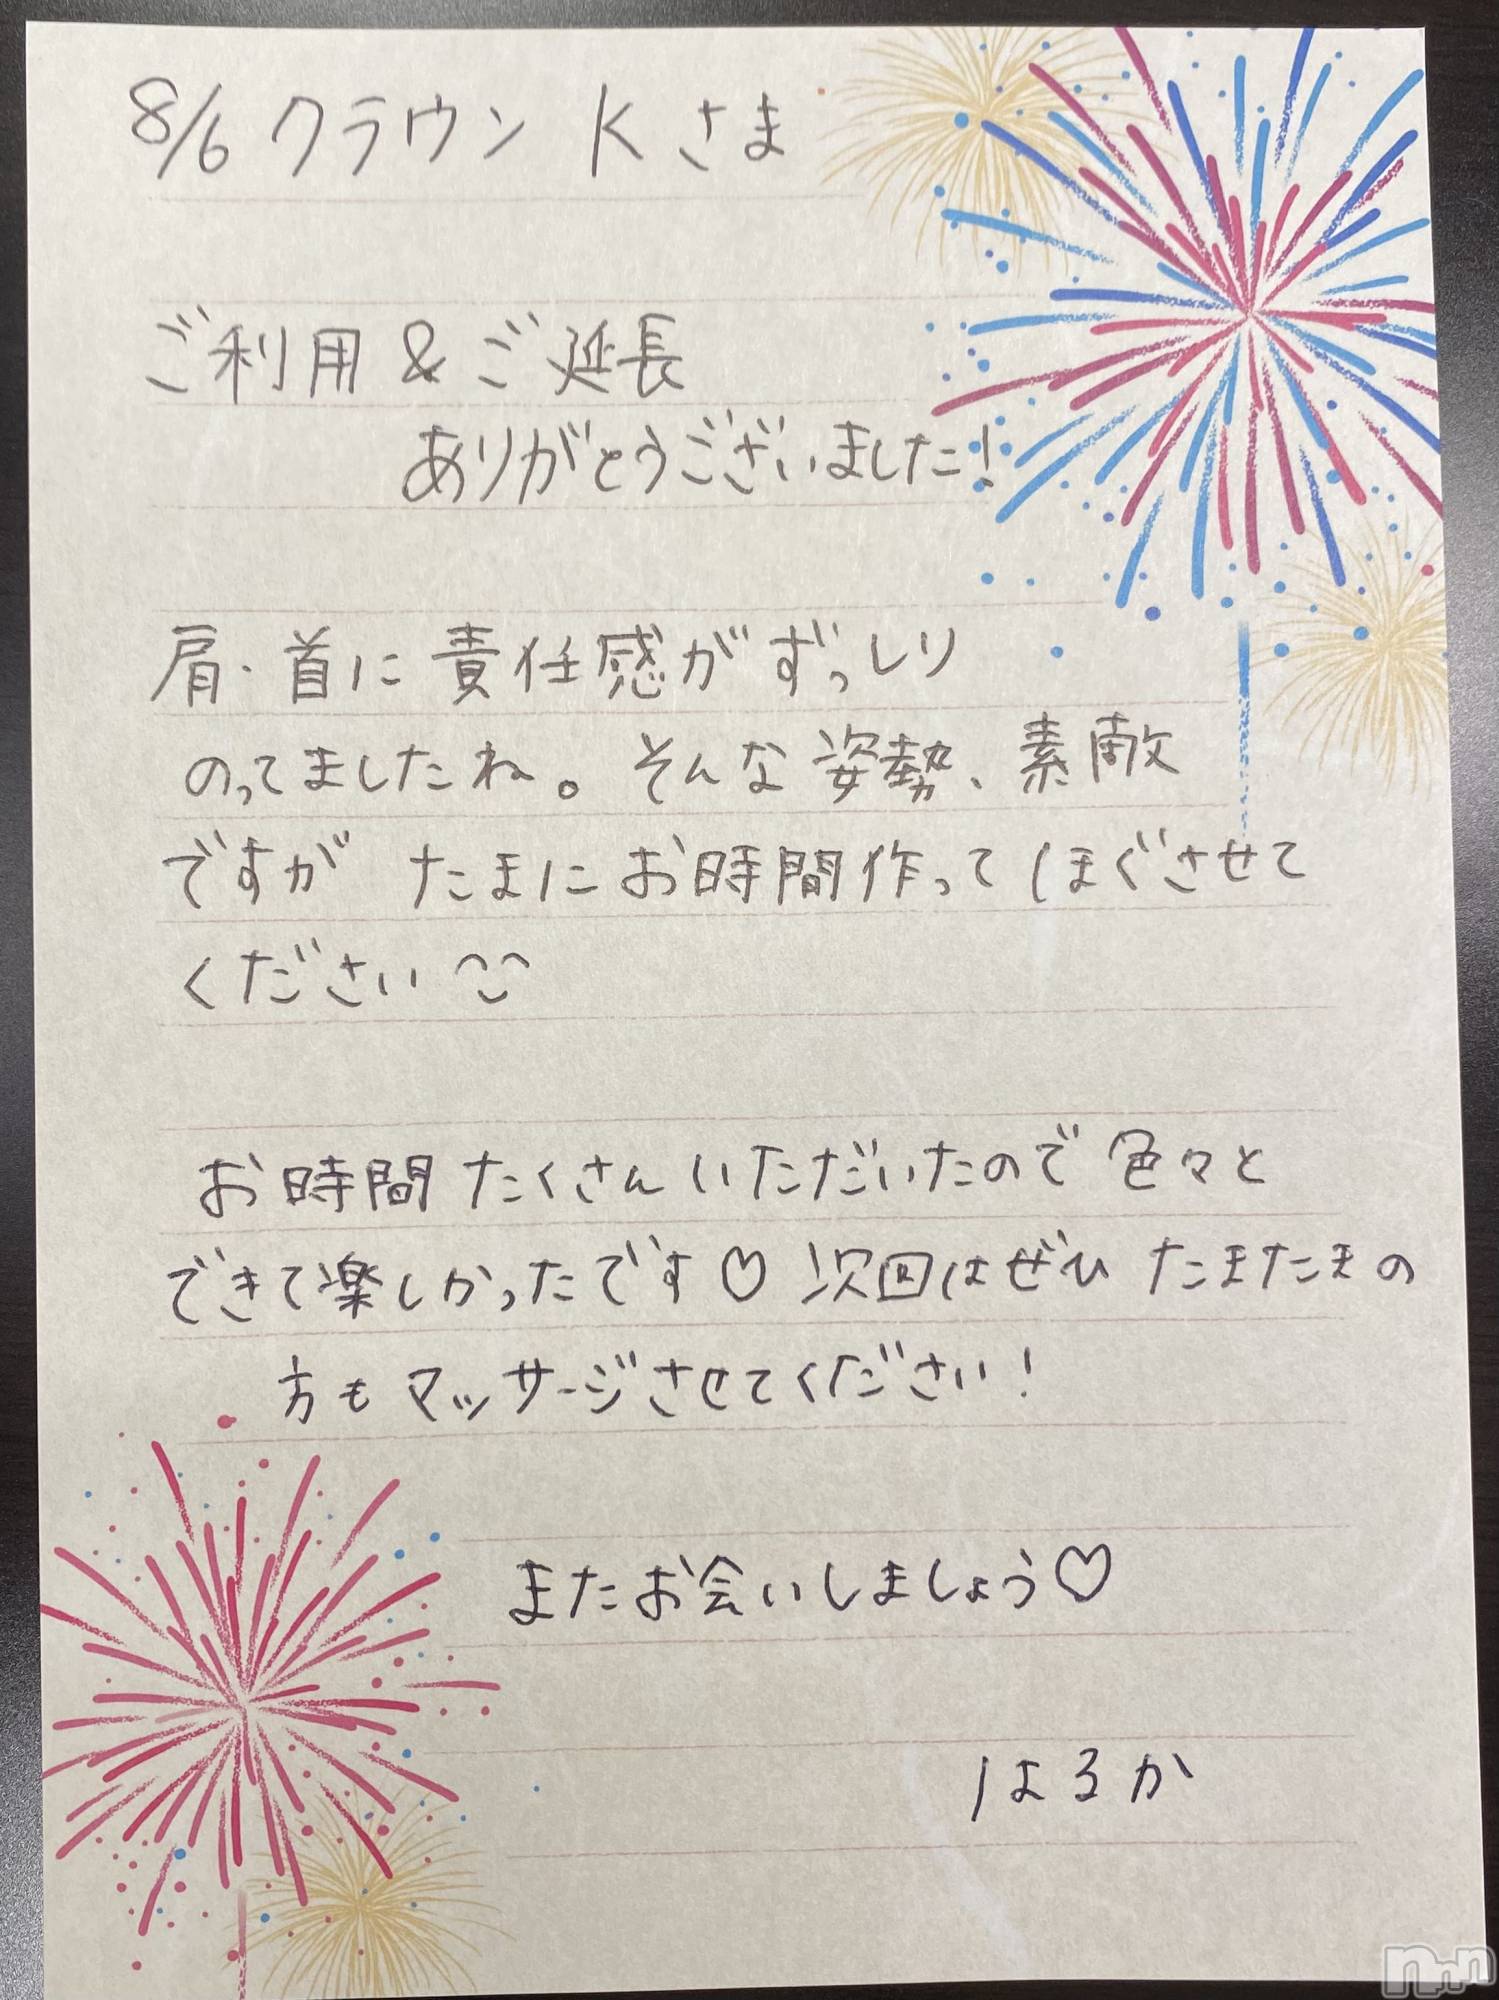 8/6 クラウン Kさま
ご利用 & ご延長
ありがとうございました!
肩・首に責任感がずっしり
のってましたね。そんな姿勢、素敵
ですが たまにお時間作ってほぐさせて
ください
お時間たくさんいただいたので色々と
できて楽しかったです♡ 次回はぜひ たまたまの
方もマッサージさせてください!
またお会いしましょう♡
はるか
nnn